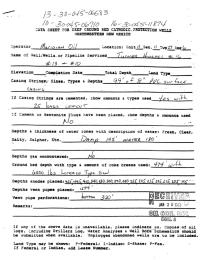 13-30-045-06683
30-045-06710
DATA SHEET FOR DEEP GROUND BED CATHODIC PROTECTION WELLS
NORTHWESTERN NEW MEXICO
Operator Meridian Oil Location: Unit Sec. Twp 27 Rng
Name of Well/Wells or Pipeline Serviced Turner Hughes
#13 & #10
Elevation Completion Date Total Depth Land Type
Casing Strings, Sizes, Types & Depths 99' of 8" PVC surface
casing
If Casing Strings are cemented, show amounts & types used Yes with
25 bags cement
If Cement or Bentonite Plugs have been placed, show depths & amounts used
No
Depths & thickness of water zones with description of water: Fresh, Clear,
Salty, Sulphur, Etc.
Depths gas encountered: No
Ground bed depth with type & amount of coke breeze used: with
Type SW
Depths anodes placed:
Depths vent pipes placed: 494'
Vent pipe perforations: bottom 320'
Remarks:
RECEIVED
OIL CON. DIV.
If any of the above data is unavailable, please indicate so. Copies of all
logs, including Drillers Log, Water Analyses & Well Bore Schematics should
be submitted when available. Unplugged abandoned wells are to be included.
Land Type may be shown: F-Federal; I-Indian; S-State; P-Fee.
If Federal or Indian, add Lease Number.